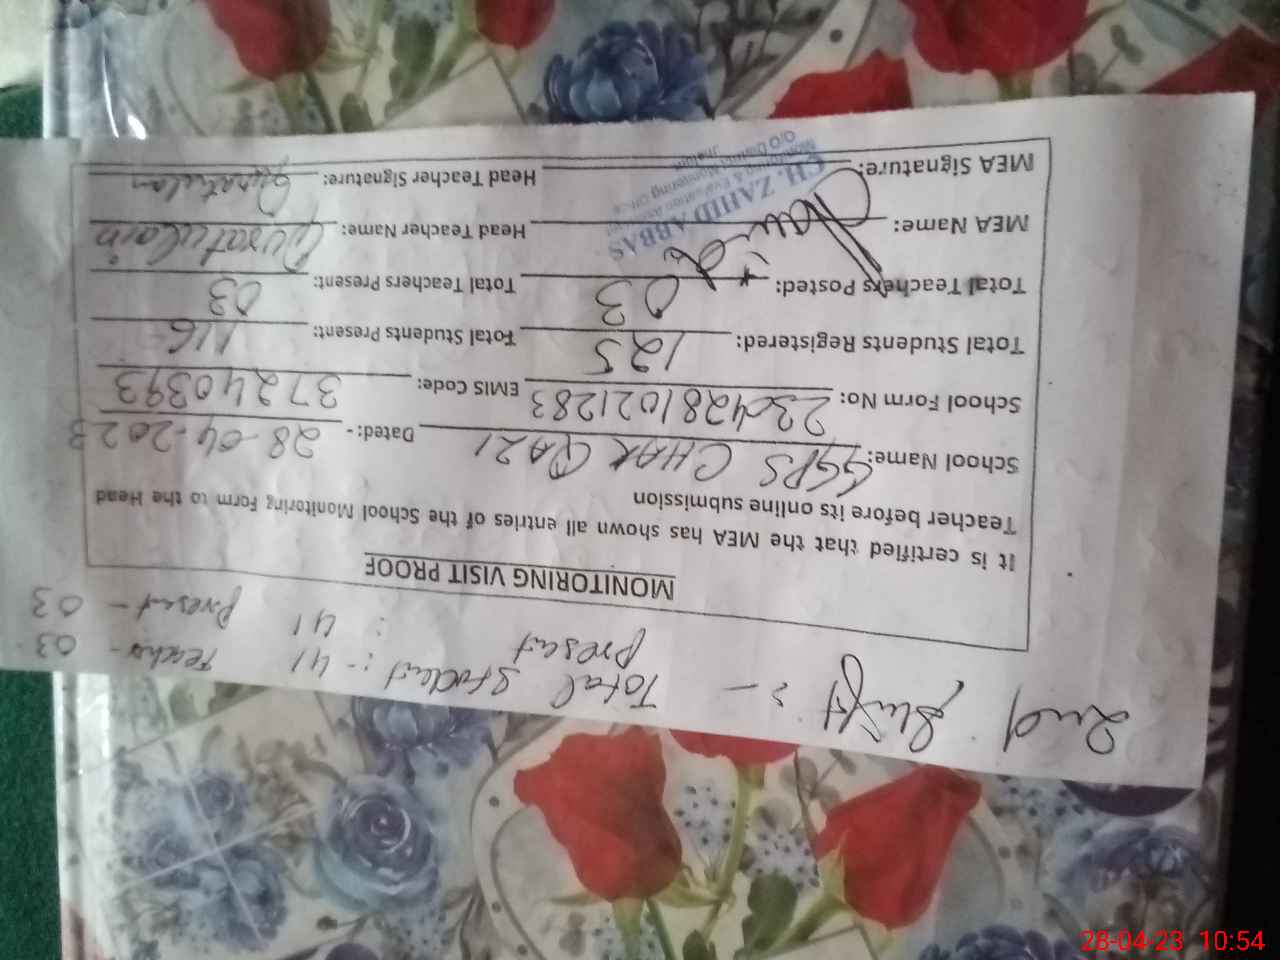 2nd Shift :- Total Student :- 41 Teacher - 03
Present : 41 Present - 03
MONITORING VISIT PROOF
It is certified that the MEA has shown all entries of the School Monitoring Form to the Head
Teacher before its online submission
School Name: GGPS CHAK QAZI Dated:- 28-04-2023
School Form No: 2304281021283 EMIS Code: 37240393
Total Students Registered: 125 Total Students Present: 116
Total Teachers Posted: 03 Total Teachers Present: 03
MEA Name: Head Teacher Name: Quratulain
MEA Signature: Head Teacher Signature: Quratulain
CH. ZAHID ABBAS
Monitoring & Evaluation Assistant
O/O District Monitoring Officer
Jhelum
28-04-23 10:54